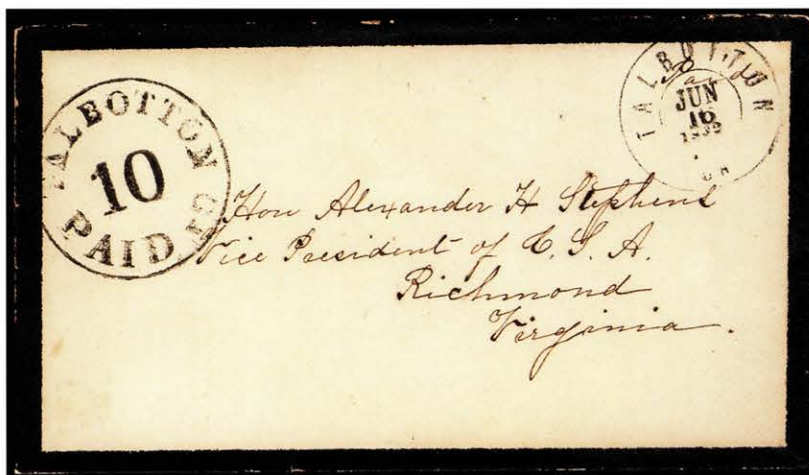 TALBOTTON GA
10
PAID
TALBOTTON
Paid
JUN
16
Hon Alexander H Stephens
Vice President of C. S. A.
Richmond
Virginia.